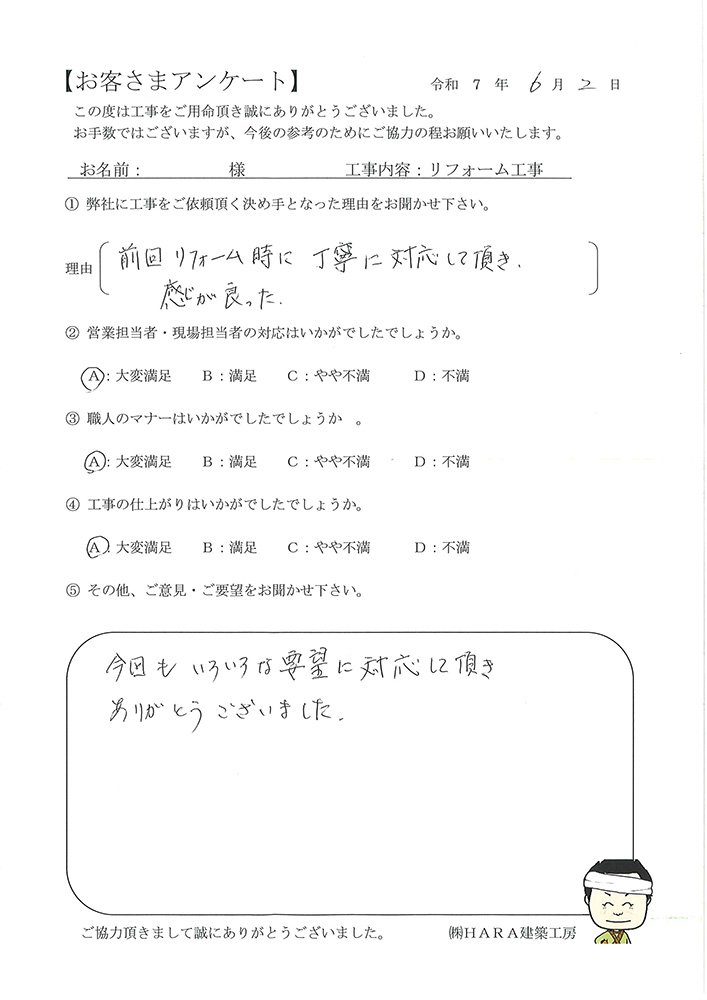 【お客さまアンケート】 令和 7 年 6 月 2 日
この度は工事をご用命頂き誠にありがとうございました。
お手数ではございますが、今後の参考のためにご協力の程お願いいたします。
お名前： 様 工事内容：リフォーム工事
① 弊社に工事をご依頼頂く決め手となった理由をお聞かせ下さい。
理由 前回リフォーム時に 丁寧に対応して頂き.
感じが良った.
② 営業担当者・現場担当者の対応はいかがでしたでしょうか。
A：大変満足 B：満足 C：やや不満 D：不満
③ 職人のマナーはいかがでしたでしょうか 。
A：大変満足 B：満足 C：やや不満 D：不満
④ 工事の仕上がりはいかがでしたでしょうか。
A：大変満足 B：満足 C：やや不満 D：不満
⑤ その他、ご意見・ご要望をお聞かせ下さい。
今回も いろいろな要望に対応して頂き
ありがとうございました.
ご協力頂きまして誠にありがとうございました。 ㈱HARA建築工房